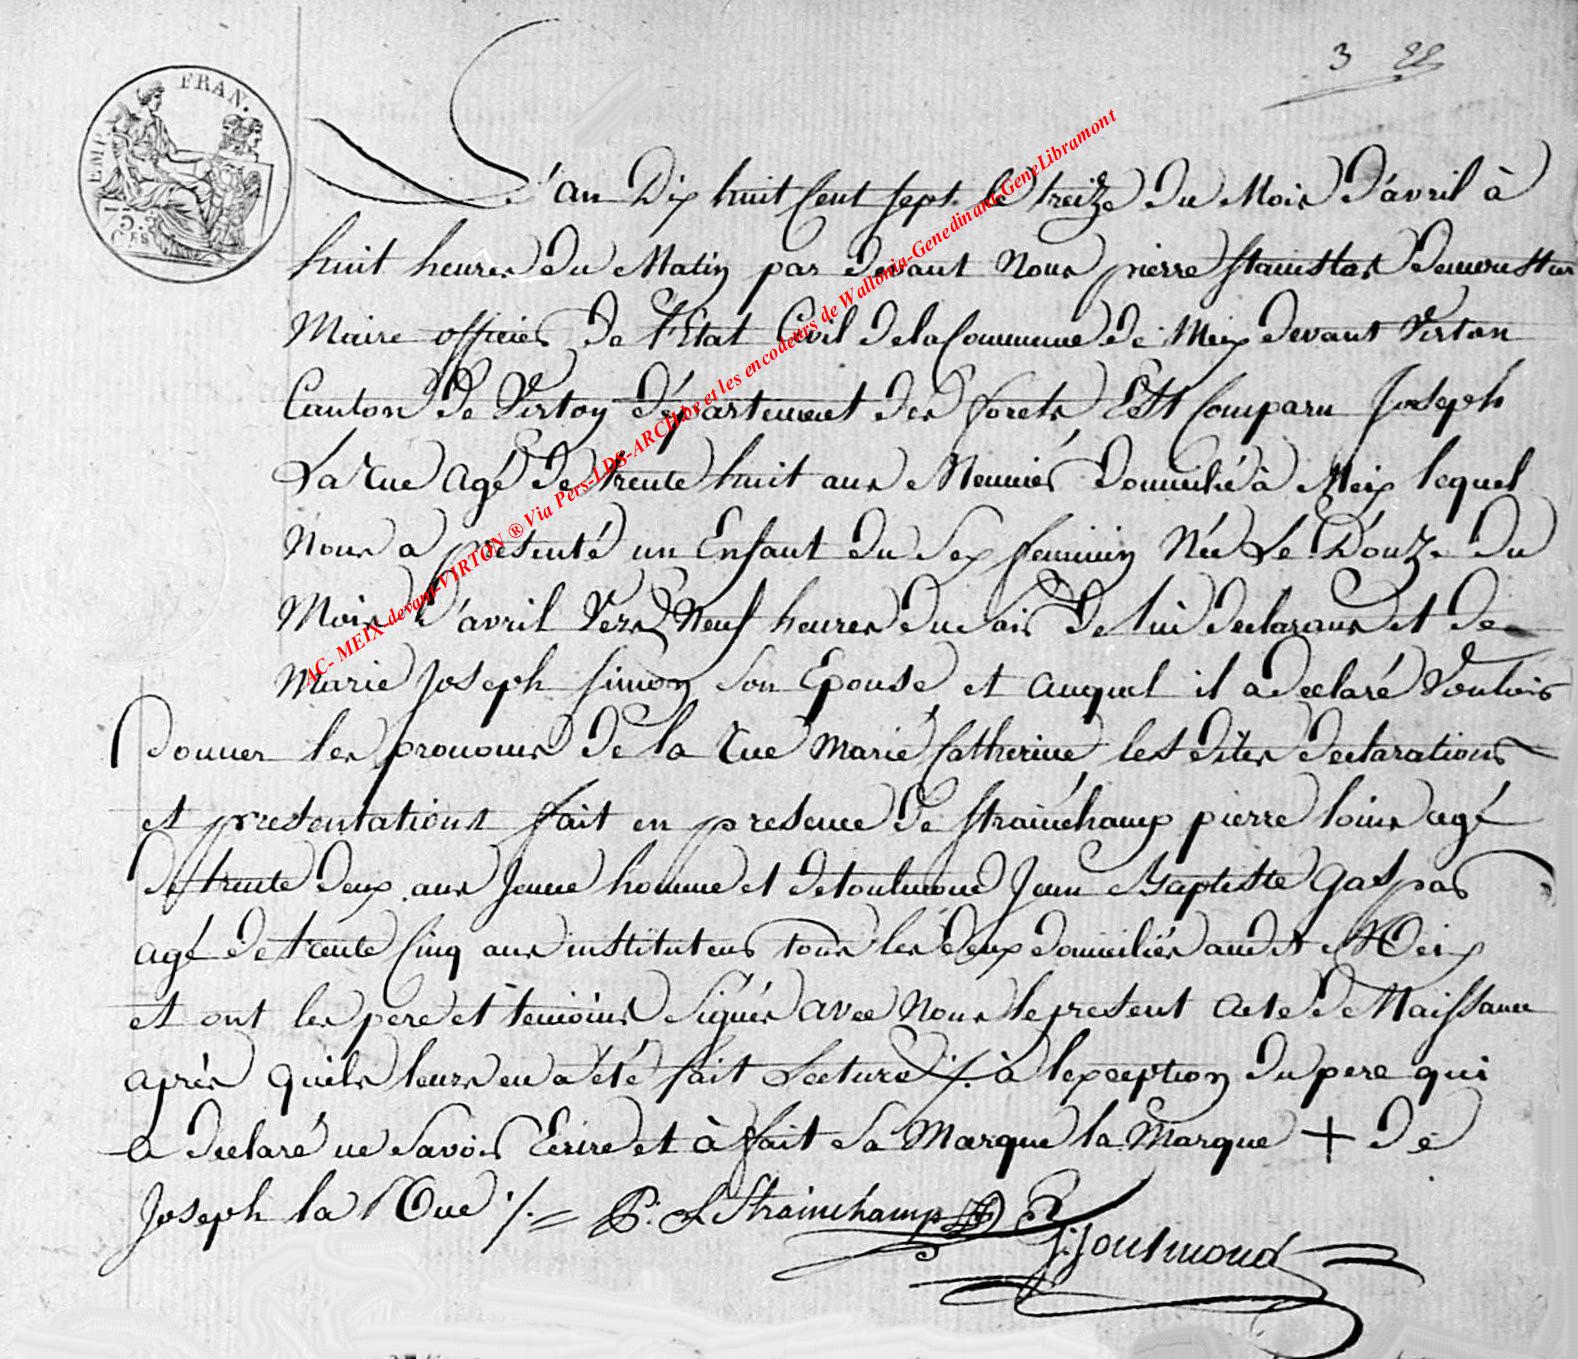 3 88
EMP. FRAN.
75.
C.ES
L'an Dix huit Cent sept le treize du Mois d'avril à
huit heures du Matin par devant Nous pierre stanislas
Maire officier de l'Etat Civil de la Commune de Meix devant Virton
Canton de Virton département des forets Est Comparu Joseph
La rue agé de trente huit ans Meunier domicilié à Meix lequel
Nous a présenté un Enfant du Sex feminin Née Le Douze du
Mois d'avril Vers Neuf heures du soir de lui declarant et de
Marie Joseph Simon Son Epouse et auquel il a declaré Vouloir
donner les pronoms de la rue Marie Catherine lesdites declarations
et presentations fait en presence de strainchamp pierre louis agé
de trente deux ans Jeune homme et de toulmond Jean Baptiste Gaspar
agé de trente Cinq ans instituteur tous les deux domiciliés audit Meix
et ont les pere et temoins Signés avec Nous le present acte de Naissance
après quils leurs en a été fait Lecture ./. à lexception du pere qui
a declaré ne Savoir Ecrire et à fait Sa Marque la Marque + de
Joseph la Rue ./. = P. L Strainchamp
J: toulmond
AC- MEIX-devant-VIRTON ® Via Pers-LDS-ARCH.be et les encodeurs de Wallonia-Genedinant-GeneLibramont